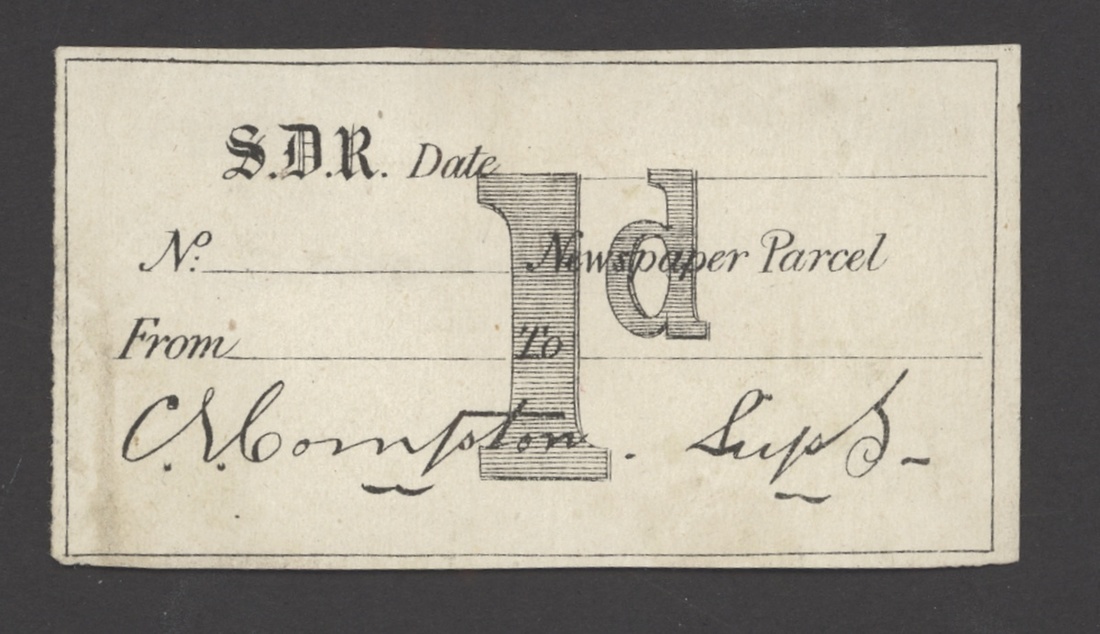 S.D.R. Date
No: Newspaper Parcel
1d
From To
C. N. Compton. Supt.